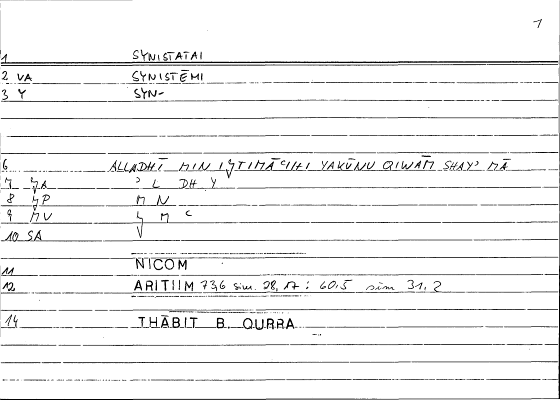 1
1 SYNISTATAI
2 VA SYNISTĒMI
3 Y SYN-
6 ALLADHĪ MIN IǦTIMĀʿIHI YAKŪNU QIWĀM SHAYʾ MĀ
7 ǦA ʾ L DH Y
8 ǦP M N
9 MV Ǧ M ʿ
10 SA
11 NICOM
12 ARITIIM 73,6 sim. 28, 17 : 60.5 sim 31. 2
14 THĀBIT B. QURRA